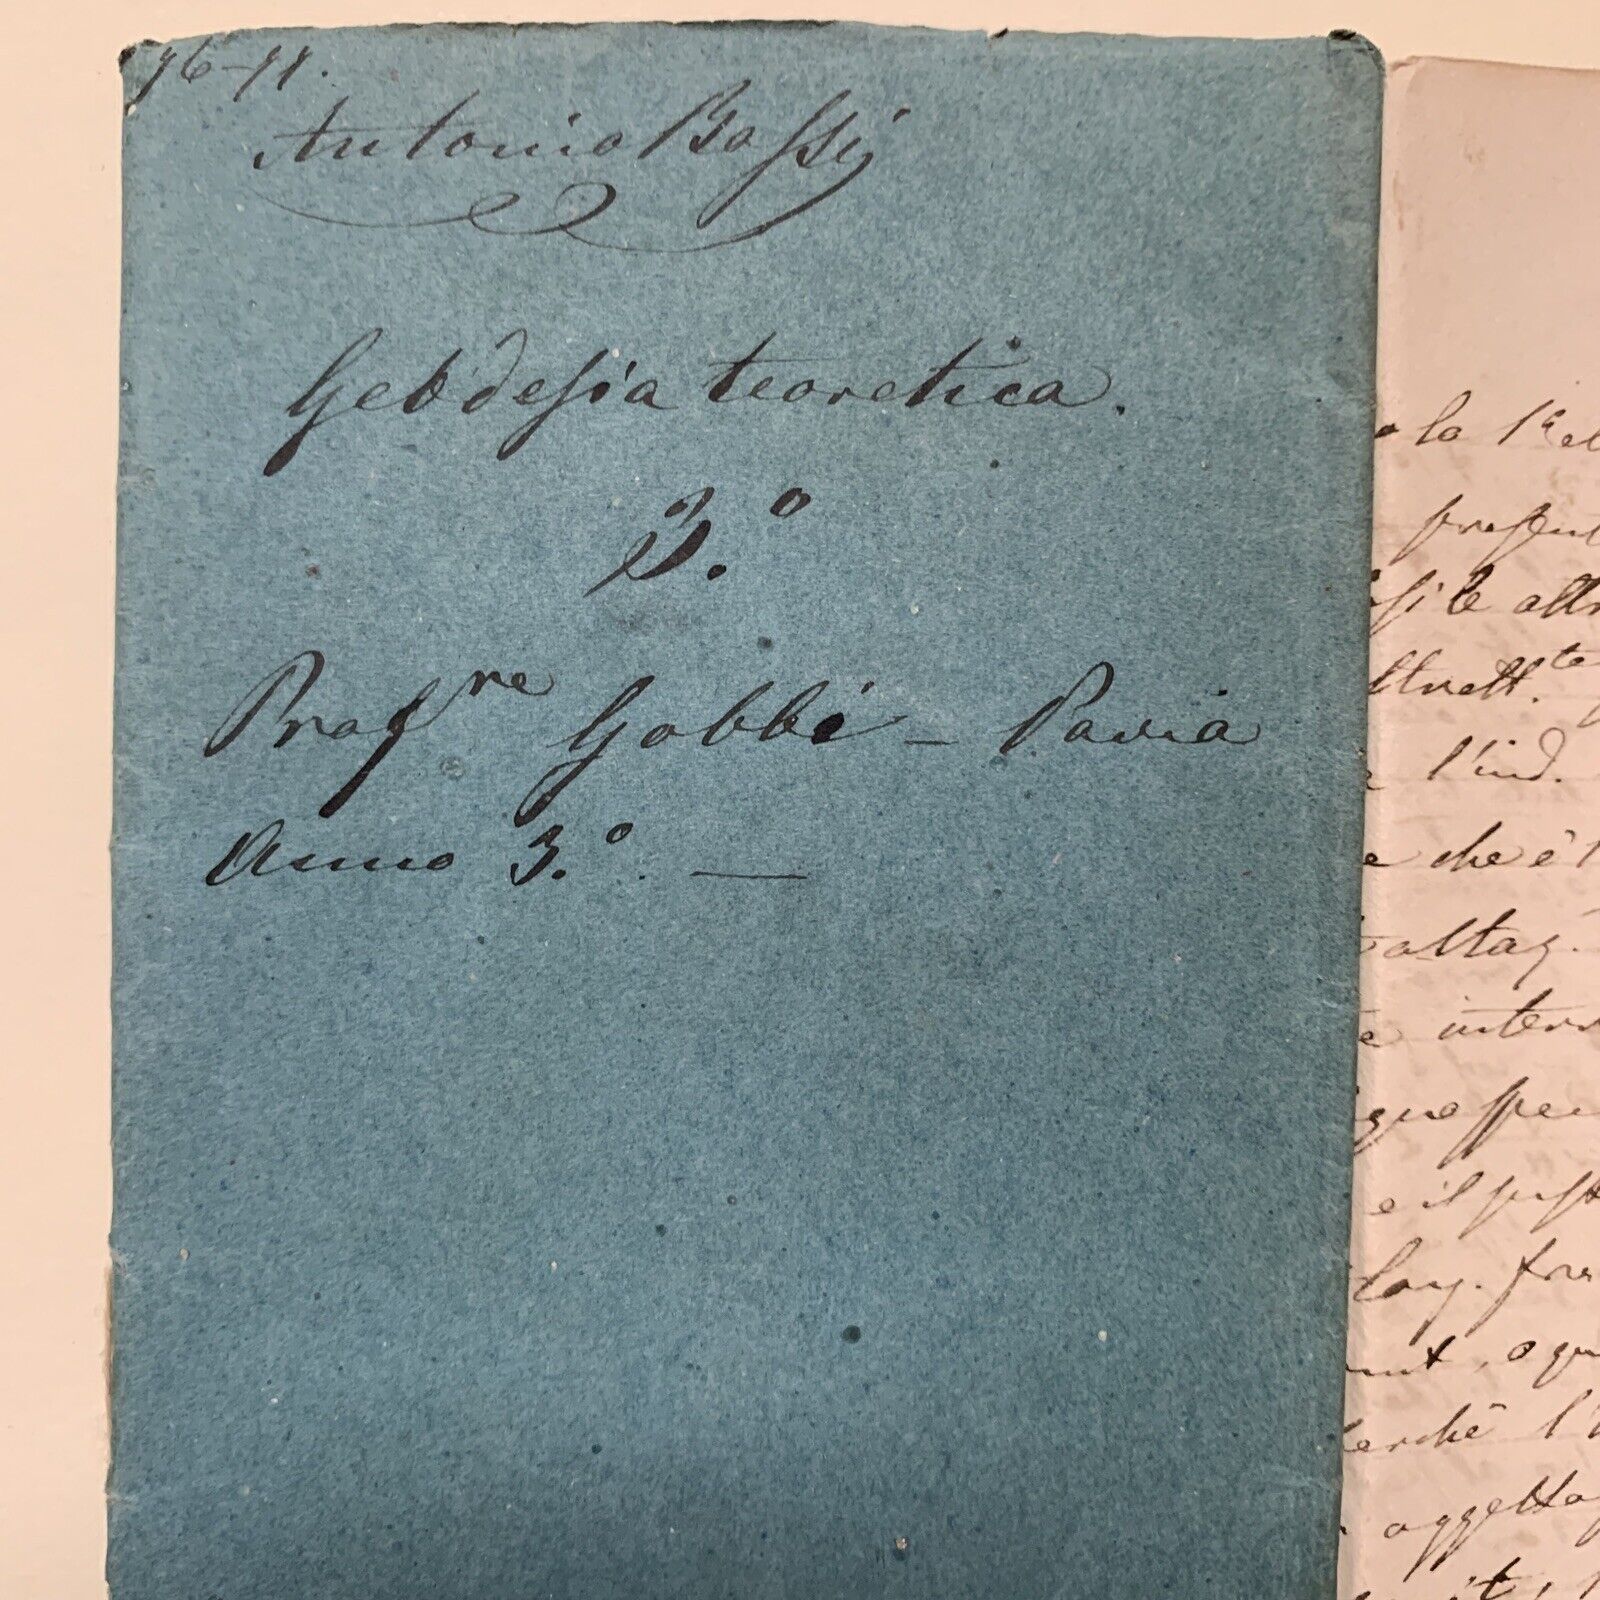 Antonio Bassi
Geodesia teoretica.
3.°
Prof.re Gobbi – Pavia
Anno 3.° —
la 1a el
present
altr
ltrett.te
l'ind.
e che è l
altaz.
e interr
e il post
perchè l'
oggetto